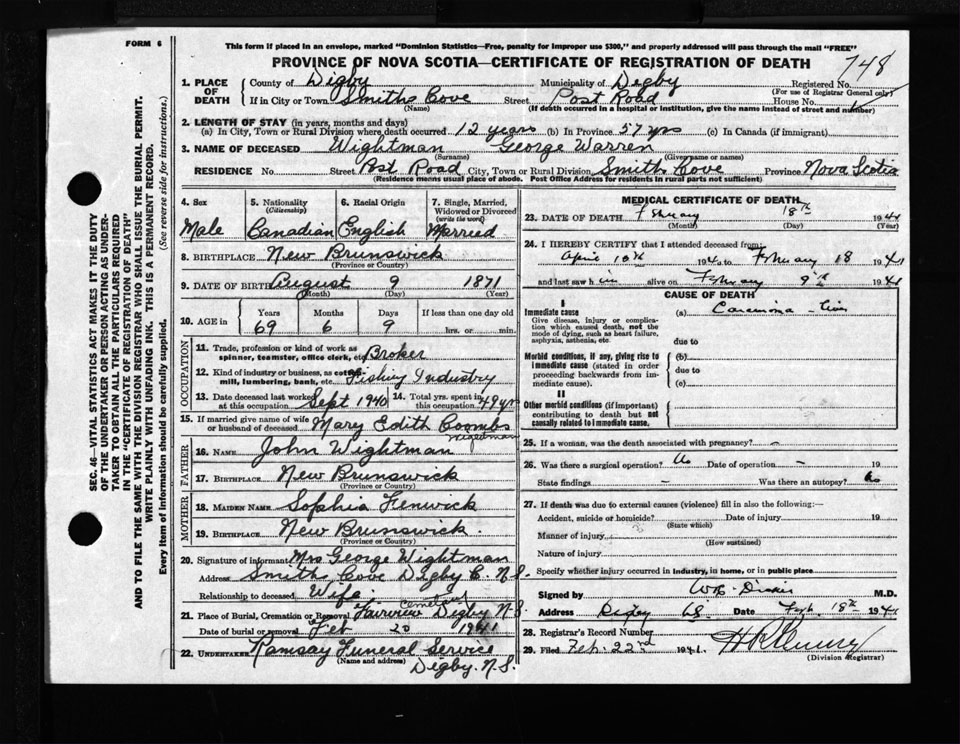 FORM 6
This form if placed in an envelope, marked "Dominion Statistics—Free, penalty for improper use $300," and properly addressed will pass through the mail "FREE"
PROVINCE OF NOVA SCOTIA—CERTIFICATE OF REGISTRATION OF DEATH
748
1. PLACE OF DEATH County of Digby Municipality of Digby Registered No.
(For use of Registrar General only)
If in City or Town Smiths Cove Street Post Road House No.
(Name) (If death occurred in a hospital or institution, give the name instead of street and number)
2. LENGTH OF STAY (in years, months and days)
(a) In City, Town or Rural Division where death occurred 12 years (b) In Province 57 yrs (c) In Canada (if immigrant)
3. NAME OF DECEASED Wightman George Warren
(Surname) (Given name or names)
RESIDENCE No. Street Post Road City, Town or Rural Division Smiths Cove Province Nova Scotia
(Residence means usual place of abode. Post Office Address for residents in rural parts not sufficient)
SEC. 46—VITAL STATISTICS ACT MAKES IT THE DUTY
OF THE UNDERTAKER OR PERSON ACTING AS UNDER-
TAKER TO OBTAIN ALL THE PARTICULARS REQUIRED
IN THE "CERTIFICATE OF REGISTRATION OF DEATH"
AND TO FILE THE SAME WITH THE DIVISION REGISTRAR WHO SHALL ISSUE THE BURIAL PERMIT.
WRITE PLAINLY WITH UNFADING INK. THIS IS A PERMANENT RECORD.
Every item of information should be carefully supplied. (See reverse side for instructions.)
4. Sex 5. Nationality (Citizenship) 6. Racial Origin 7. Single, Married, Widowed or Divorced (write the word)
Male Canadian English Married
8. BIRTHPLACE New Brunswick
(Province or Country)
9. DATE OF BIRTH August 9 1871
(Month) (Day) (Year)
10. AGE in Years Months Days If less than one day old
69 6 9 hrs. or min.
OCCUPATION
11. Trade, profession or kind of work as spinner, teamster, office clerk, etc. Broker
12. Kind of industry or business, as cotton mill, lumbering, bank, etc. Fishing Industry
13. Date deceased last worked at this occupation Sept 1940 14. Total yrs. spent in this occupation 49 yrs
15. If married give name of wife or husband of deceased Mary Edith Coombs
Wightman
FATHER
16. NAME John Wightman
17. BIRTHPLACE New Brunswick
(Province or Country)
MOTHER
18. MAIDEN NAME Sophia Fenwick
19. BIRTHPLACE New Brunswick
(Province or Country)
20. Signature of informant Mrs George Wightman
Address Smith Cove Digby C. N.S.
Relationship to deceased Wife
21. Place of Burial, Cremation or Removal Fairview Cemetery Digby N.S.
Date of burial or removal Feb 20 1941
22. UNDERTAKER Ramsay Funeral Service
(Name and address) Digby. N.S.
MEDICAL CERTIFICATE OF DEATH
23. DATE OF DEATH February 18th 1941
(Month) (Day) (Year)
24. I HEREBY CERTIFY that I attended deceased from:
April 10th 1940 to February 18 1941
and last saw him alive on February 9th 1941
CAUSE OF DEATH
I
Immediate cause (a) Carcinoma - liver
Give disease, injury or complication which caused death, not the mode of dying, such as heart failure, asphyxia, asthenia, etc.
due to
Morbid conditions, if any, giving rise to immediate cause (stated in order proceeding backwards from immediate cause). (b)
due to
(c)
II
Other morbid conditions (if important) contributing to death but not causally related to immediate cause.
25. If a woman, was the death associated with pregnancy? -
26. Was there a surgical operation? No Date of operation - 19
State findings - Was there an autopsy? No
27. If death was due to external causes (violence) fill in also the following:—
Accident, suicide or homicide? Date of injury 19
(State which)
Manner of injury
(How sustained)
Nature of injury
Specify whether injury occurred in industry, in home, or in public place
Signed by M.D.
Address Digby NS Date Feb. 18th 1941
28. Registrar's Record Number
29. Filed Feb. 22nd 1941
(Division Registrar)